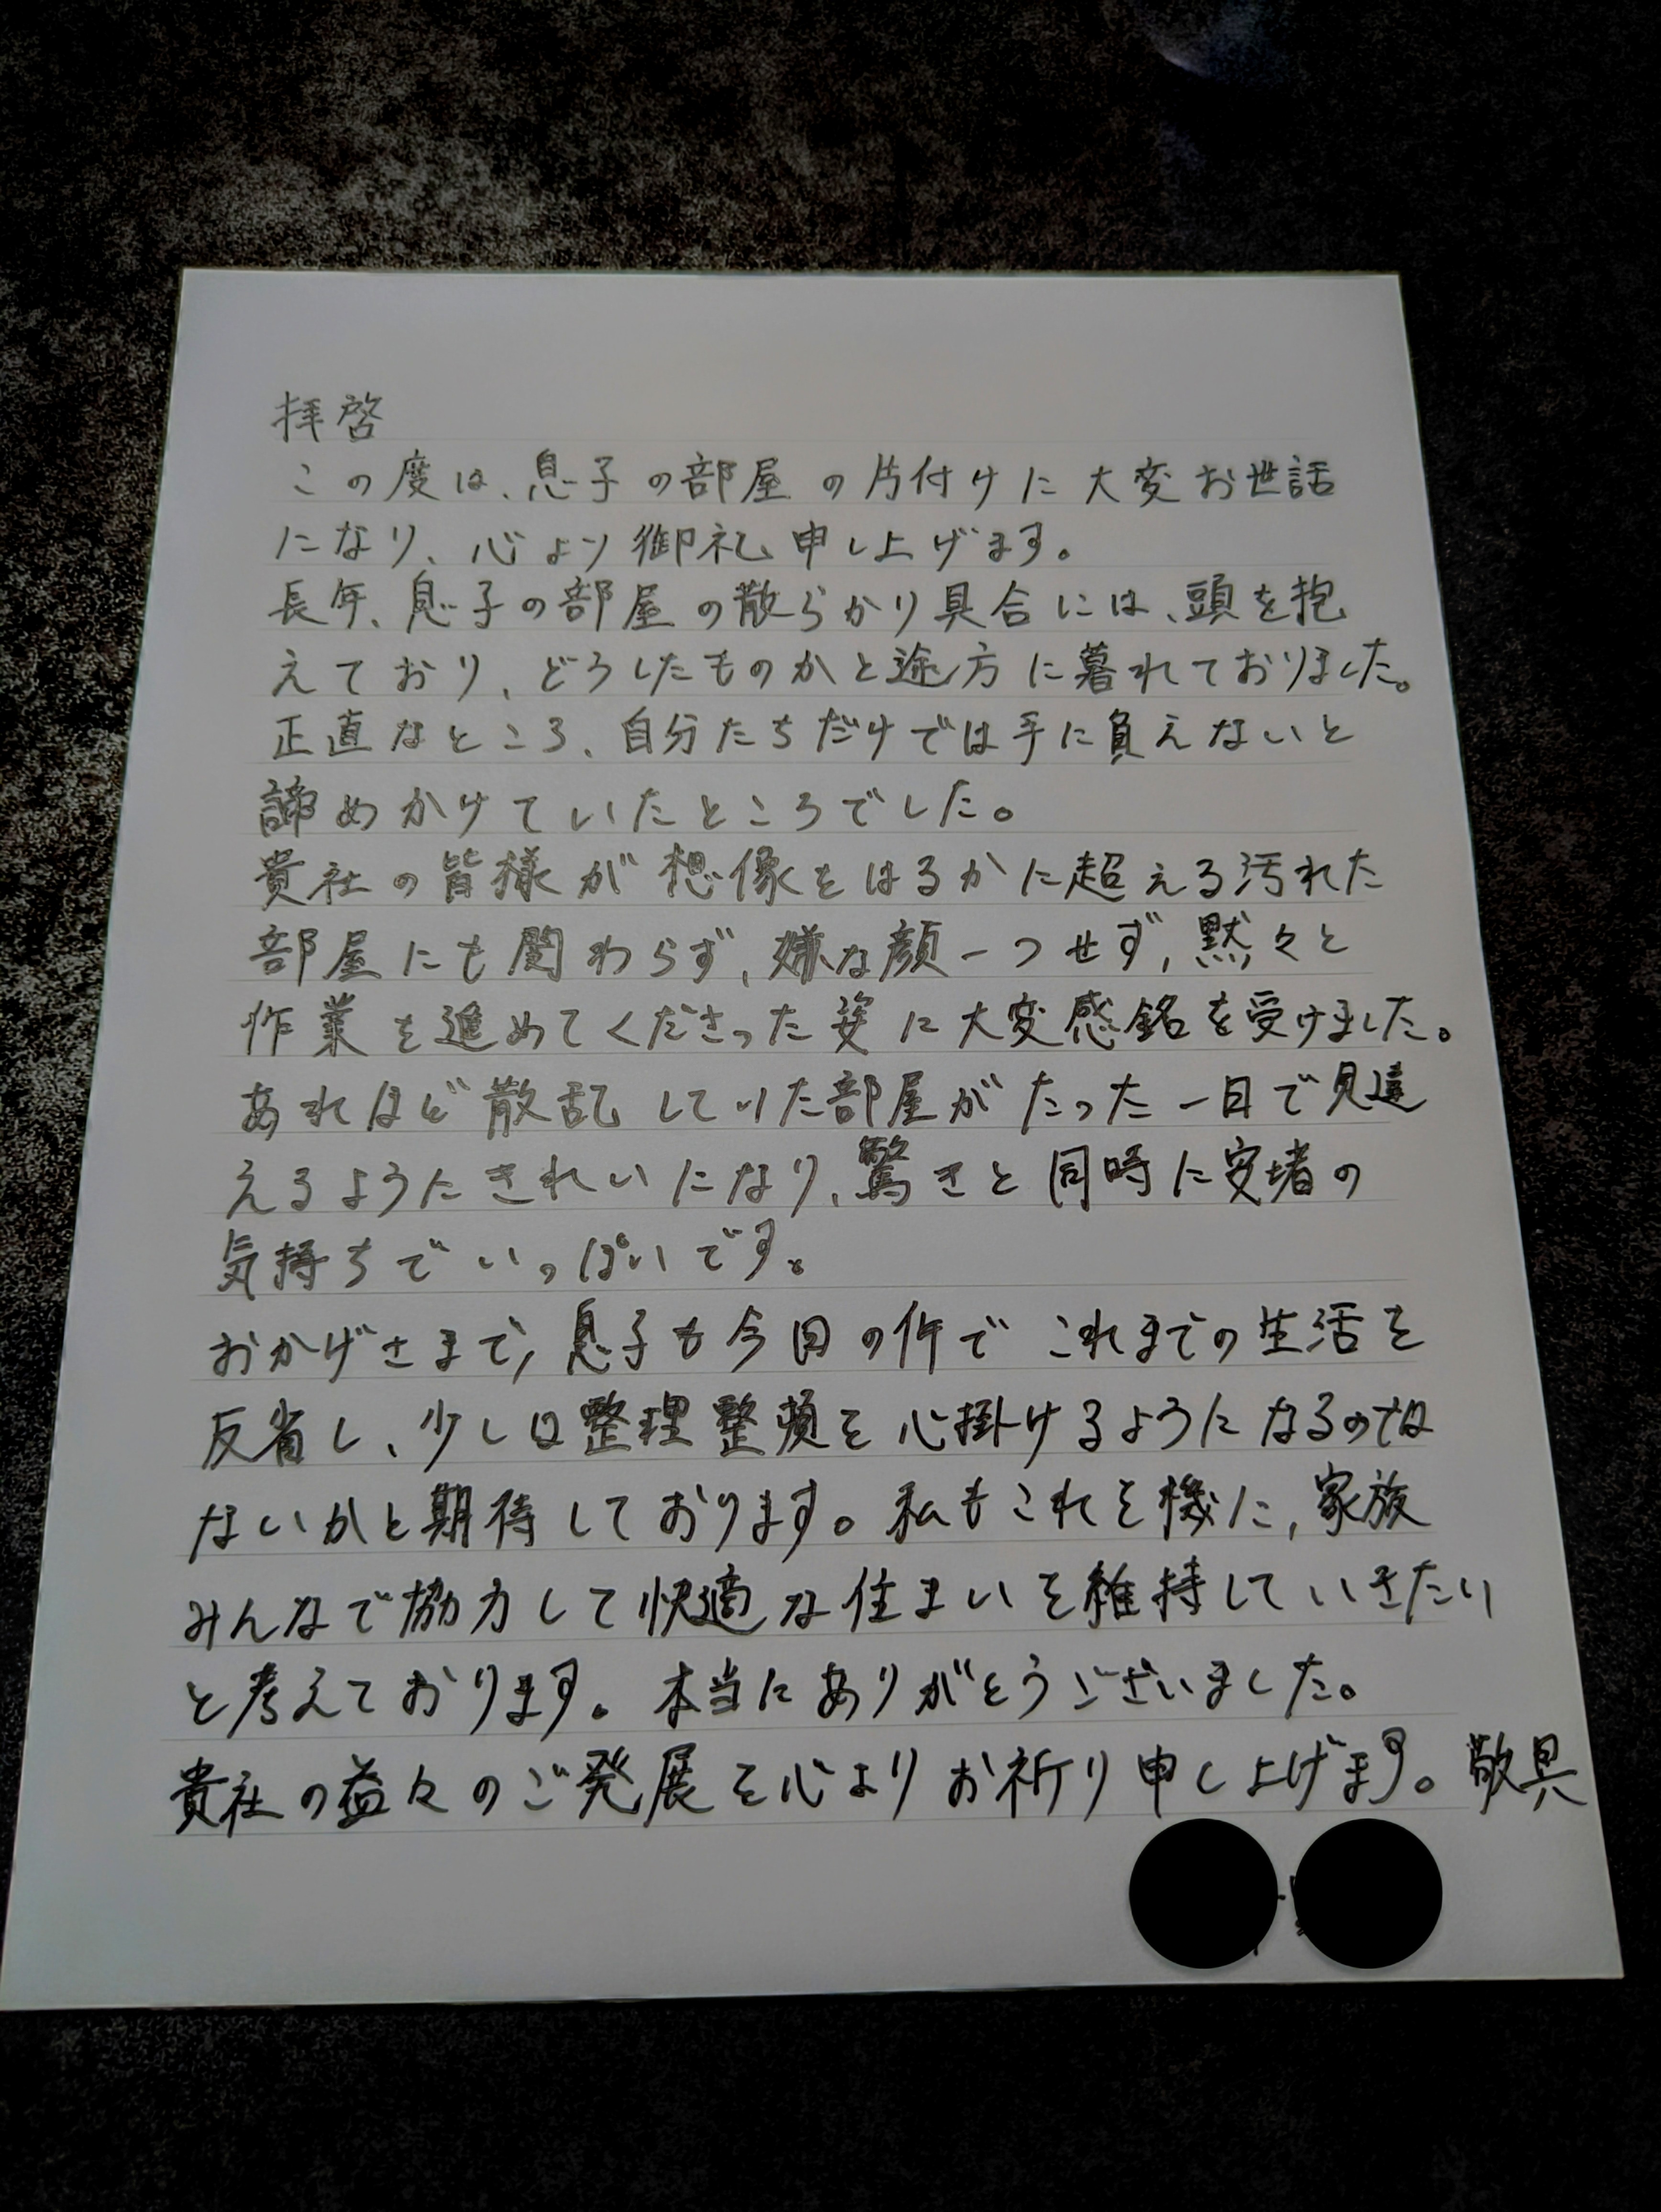 拝啓
この度は、息子の部屋の片付けに大変お世話
になり、心より御礼申し上げます。
長年、息子の部屋の散らかり具合には、頭を抱
えており、どうしたものかと途方に暮れておりました。
正直なところ、自分たちだけでは手に負えないと
諦めかけていたところでした。
貴社の皆様が想像をはるかに超える汚れた
部屋にも関わらず、嫌な顔一つせず、黙々と
作業を進めてくださった姿に大変感銘を受けました。
あれほど散乱していた部屋がたった一日で見違
えるようにきれいになり、驚きと同時に安堵の
気持ちでいっぱいです。
おかげさまで、息子も今回の件でこれまでの生活を
反省し、少しは整理整頓を心掛けるようになるのでは
ないかと期待しております。私もこれを機に、家族
みんなで協力して快適な住まいを維持していきたい
と考えております。本当にありがとうございました。
貴社の益々のご発展を心よりお祈り申し上げます。敬具